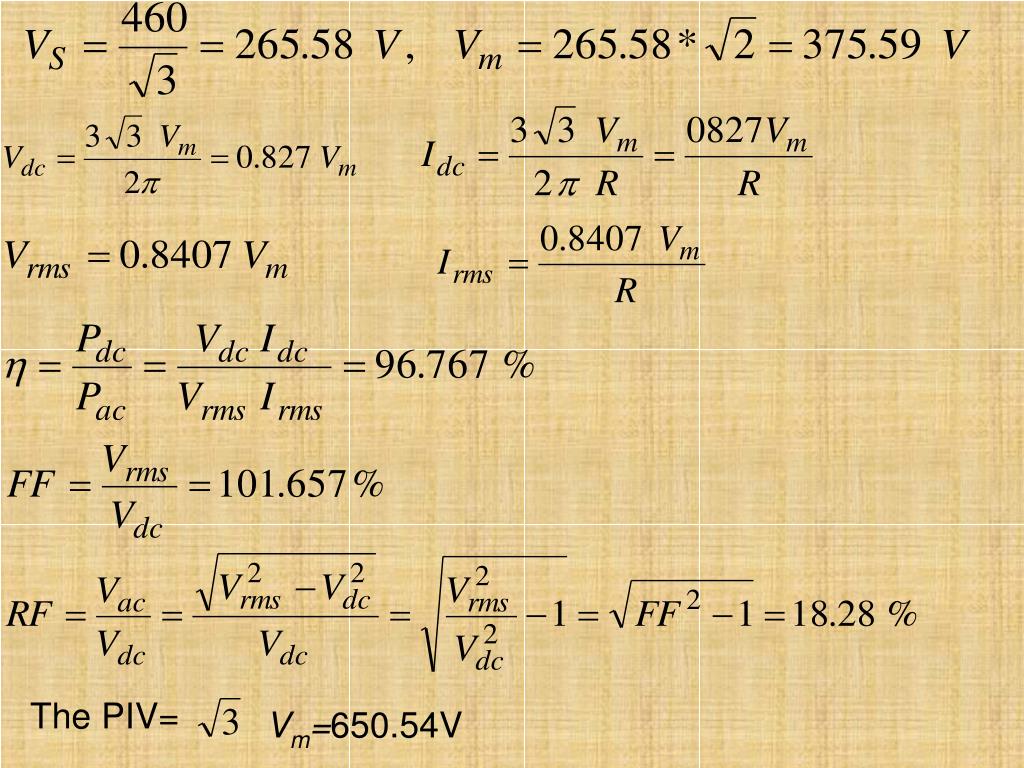 V_S = 460/√3 = 265.58 V, V_m = 265.58 * √2 = 375.59 V
V_dc = 3√3 V_m / 2π = 0.827 V_m I_dc = 3√3 V_m / 2π R = 0827V_m / R
V_rms = 0.8407 V_m I_rms = 0.8407 V_m / R
η = P_dc / P_ac = V_dc I_dc / V_rms I_rms = 96.767 %
FF = V_rms / V_dc = 101.657 %
RF = V_ac / V_dc = √(V_rms^2 − V_dc^2) / V_dc = √(V_rms^2 / V_dc^2 − 1) = √(FF^2 − 1) = 18.28 %
The PIV= √3 V_m=650.54V